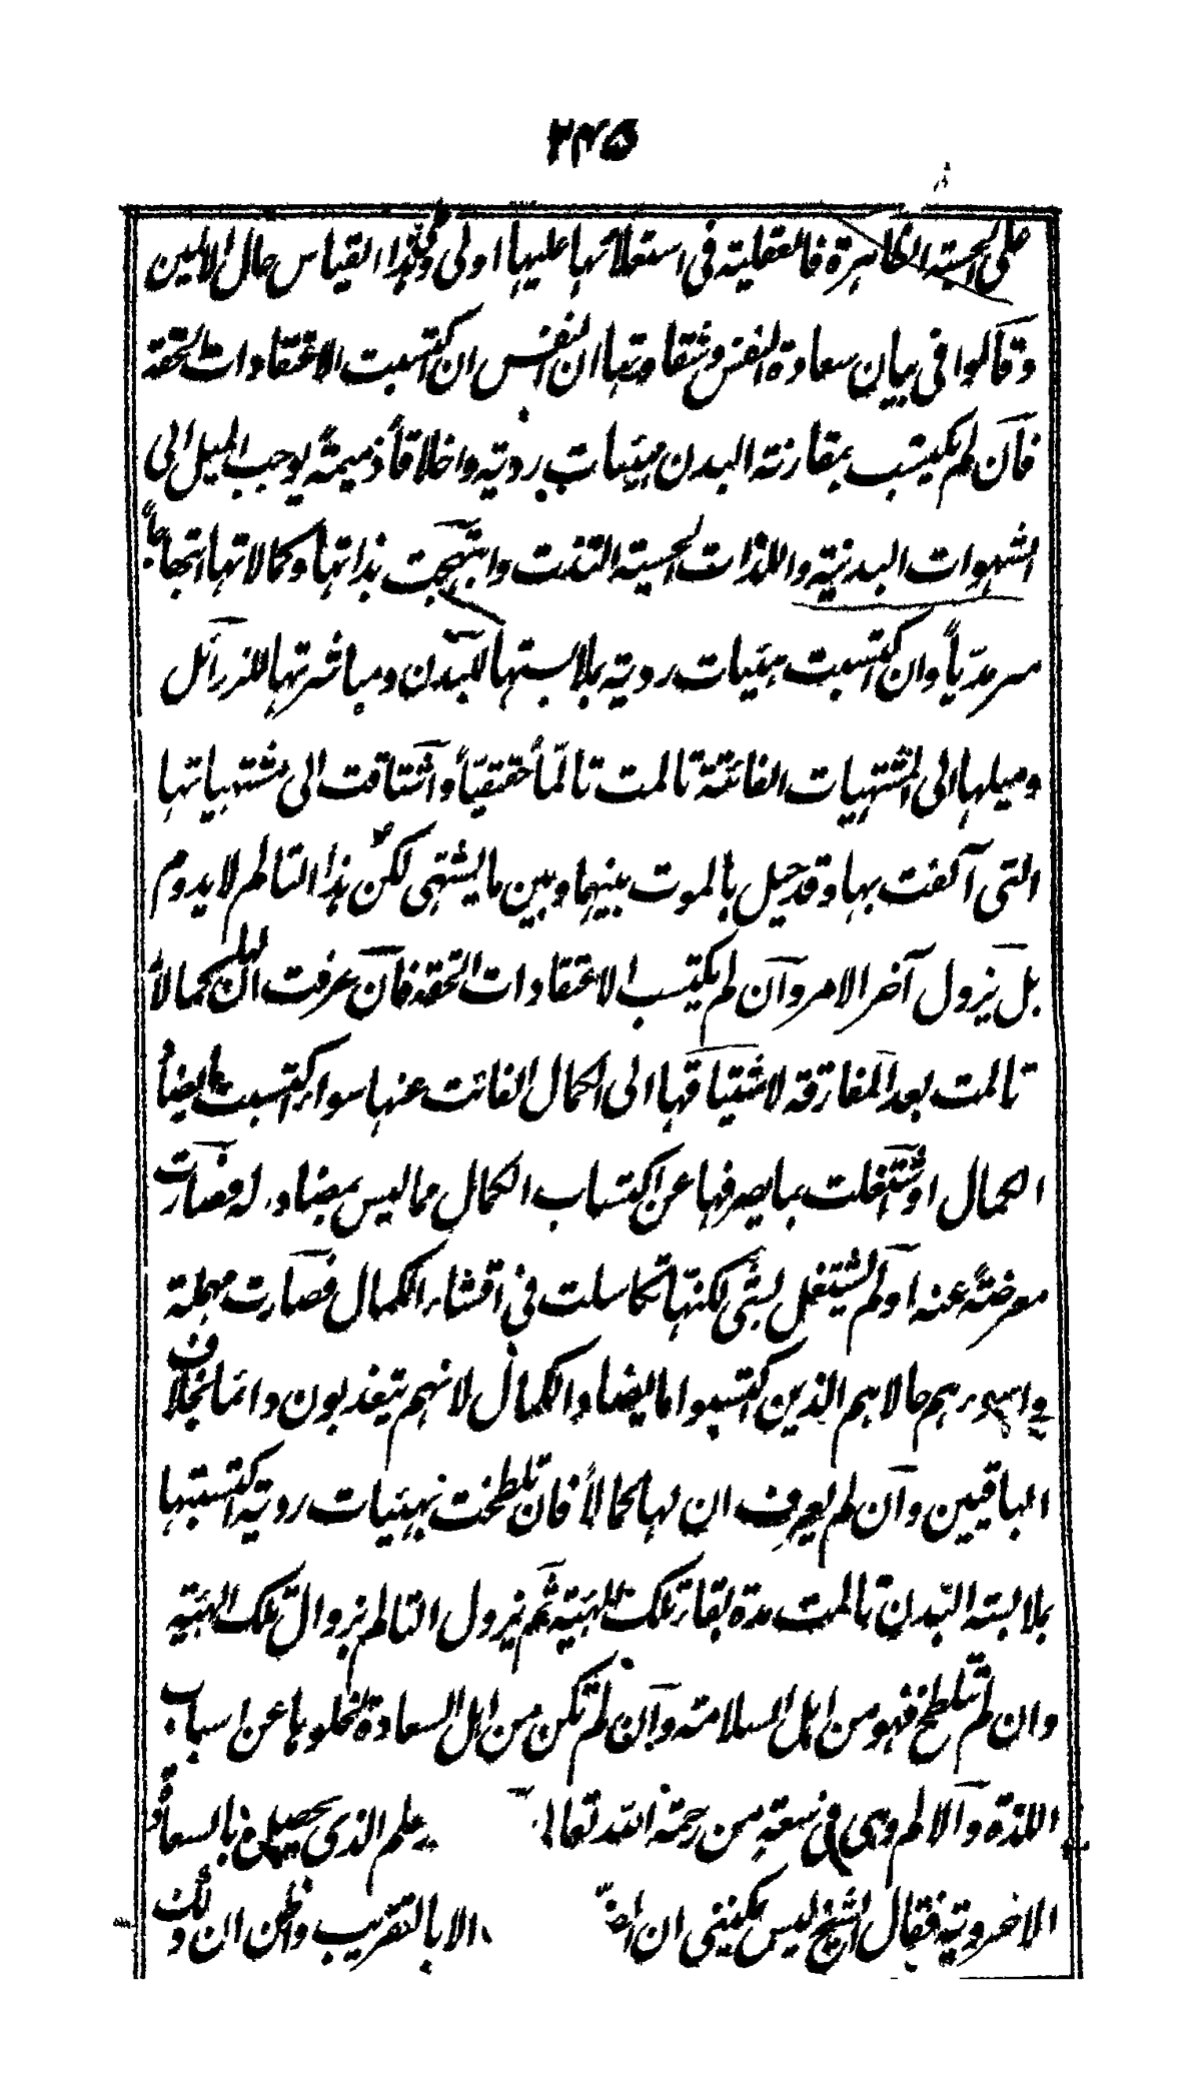 ٢٣٥
على الحسية الظاهرة فالعقلية في استعلائها عليها اولى وعلى هذا القياس حال الالمين
وقالوا في بيان سعادة النفس وشقاوتها ان النفس ان اكتسبت الاعتقادات الحقة
فان لم يكتسب بمقارنة البدن هيئات ردية واخلاقاً ذميمةً يوجب الميل الى
الشهوات البدنية واللذات الحسية التذت وابتهجت بذاتها وكمالاتها ابتهاجاً
سرمديّاً وان اكتسبت هيئات ردية بملابستها للبدن ومباشرتها للرذائل
وميلها الى المشتهيات الفائتة تالمت تالّماً حقيقيّاً واشتاقت الى مشتهياتها
التي الفت بها وقد حيل بالموت بينهما وبين ما يشتهى لكن هذا التالم لا يدوم
بل يزول آخر الامر وان لم يكتسب الاعتقادات الحقة فان عرفت ان لها كمالاً
تالمت بعد المفارقة لاشتياقها الى الكمال الفائت عنها سواء اكتسبت ما يضاد
الكمال او اشتغلت بما يصرفها عن اكتساب الكمال مما ليس بمضاد له فصارت
معرضةً عنه او لم يشتغل بشئ لكنها تكاسلت في اقتناء الكمال فصارت مهملة
واسوءهم حالا هم الذين اكتسبوا ما يضاد الكمال لانهم يتعذبون دائما بخلاف
الباقيين وان لم يعرف ان لها كمالاً فان تلطخت بهيئات ردية اكتسبتها
بملابسة البدن تالمت مدة بقاء تلك الهيئة ثم يزول التالم بزوال تلك الهيئة
وان لم تتلطخ فهو من اهل السلامة وان لم تكن من اهل السعادة لخلوها عن اسباب
اللذة والالم وهي في سعة من رحمة الله تعالى علم الذي يحصل بالسعادة
الاخروية فقال الشيخ ليس يمكنني ان الا بالتقريب واظن ان ذلك